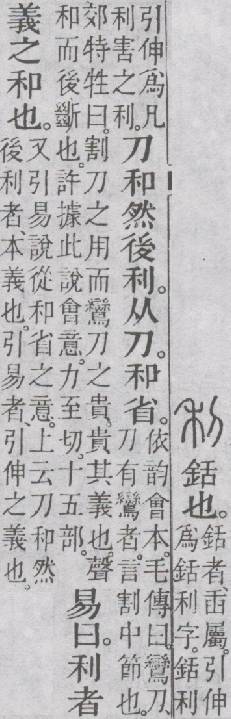 利 銛也。銛者、臿屬。引伸
爲銛利字。銛利
引伸爲凡
利害之利。
刀和然後利。从刀。和省。
依韵會本。毛傳曰。鸞刀、
刀有鸞者。言割中節也。
郊特牲曰。割刀之用而鸞刀之貴。貴其義也。聲
和而後斷也。許據此說會意。力至切。十五部。
易曰。利者
義之和也。
又引易說從和省之意。上云刀和然
後利者、本義也。引易者、引伸之義也。